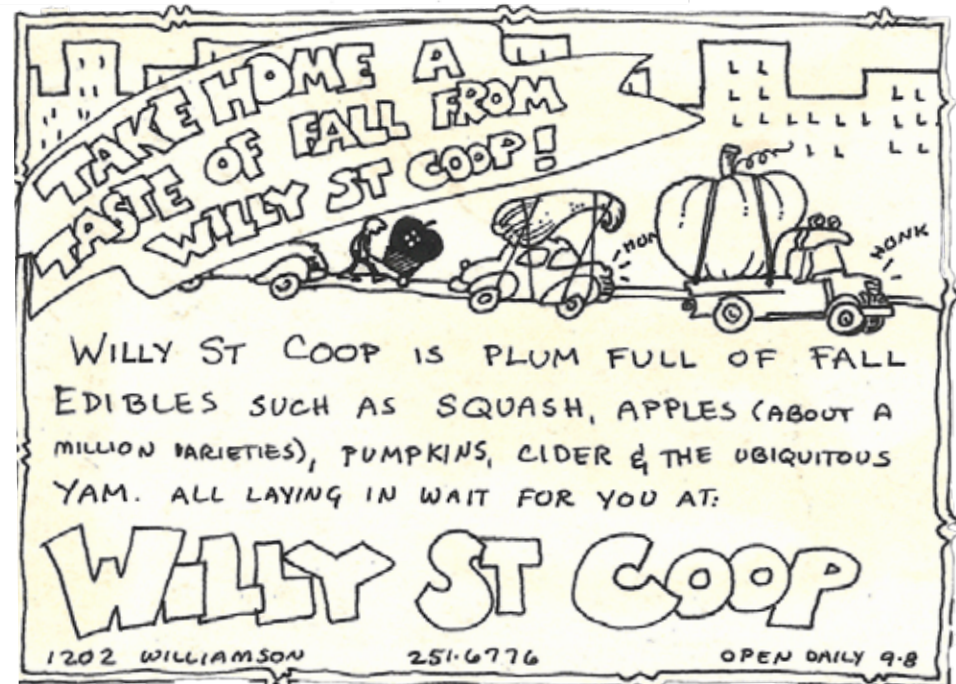 TAKE HOME A
TASTE OF FALL FROM
WILLY ST COOP!
HON
HONK
WILLY ST COOP IS PLUM FULL OF FALL
EDIBLES SUCH AS SQUASH, APPLES (ABOUT A
MILLION VARIETIES), PUMPKINS, CIDER & THE UBIQUITOUS
YAM. ALL LAYING IN WAIT FOR YOU AT:
WILLY ST COOP
1202 WILLIAMSON 251·6776 OPEN DAILY 9-8